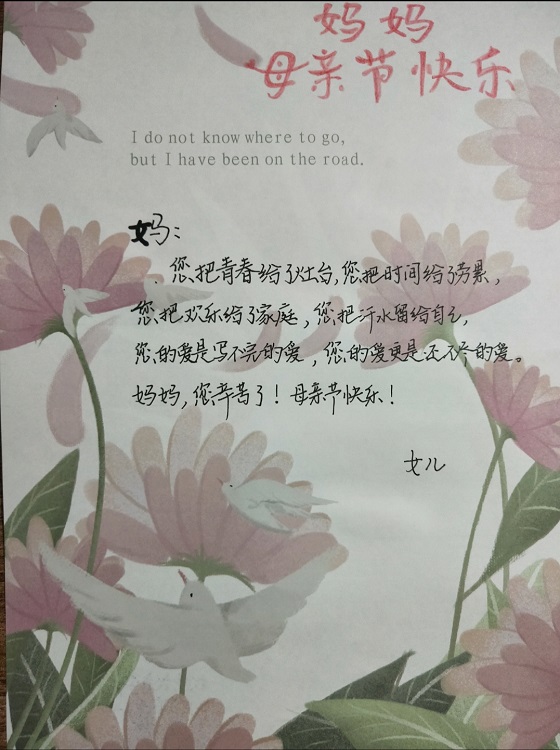 妈妈
母亲节快乐
I do not know where to go,
but I have been on the road.
妈:
您把青春给了灶台,您把时间给了劳累,
您把欢乐给了家庭,您把汗水留给自己,
您的爱是写不完的爱,您的爱更是还不清的爱。
妈妈,您辛苦了!母亲节快乐!
女儿